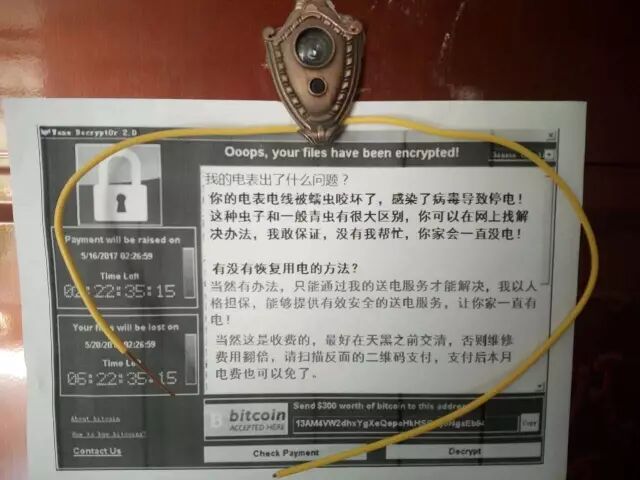 Wana Decrypt0r 2.0
Ooops, your files have been encrypted!
我的电表出了什么问题？
你的电表电线被蠕虫咬坏了，感染了病毒导致停电！
这种虫子和一般青虫有很大区别，你可以在网上找解
决办法，我敢保证，没有我帮忙，你家会一直没电！
有没有恢复用电的方法？
当然有办法，只能通过我的送电服务才能解决，我以人
格担保，能够提供有效安全的送电服务，让你家一直有
电！
当然这是收费的，最好在天黑之前交清，否则维修
费用翻倍，请扫描反面的二维码支付，支付后本月
电费也可以免了。
Payment will be raised on
5/16/2017 02:26:59
Time Left
02:22:35:15
Your files will be lost on
02:26:59
Time
06:22:35:15
About bitcoin
How to buy bitcoins?
Contact Us
bitcoin
ACCEPTED HERE
Send $300 worth of bitcoin to this address
Copy
Check Payment
Decrypt